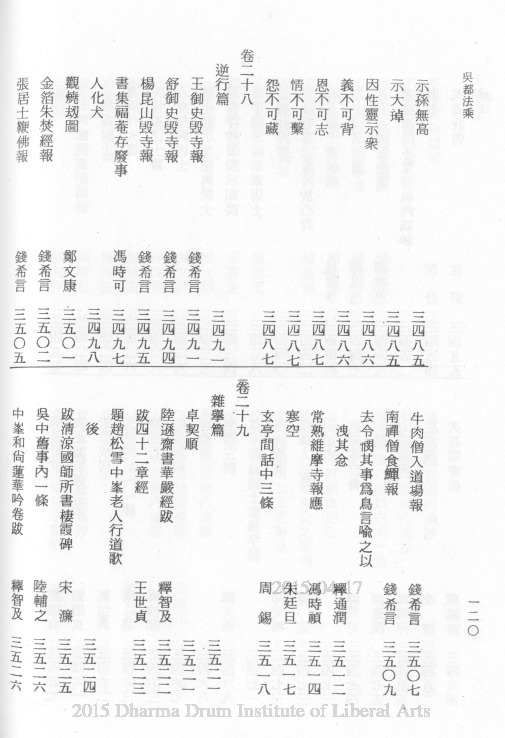 吳都法乘
一二〇
示孫無高 三四八五
示大㻹 三四八五
因性靈示衆 三四八六
義不可背 三四八六
恩不可忘 三四八七
情不可繫 三四八七
怨不可藏 三四八七
卷二十八
逆行篇 三四九一
王御史毀寺報 錢希言 三四九一
舒御史毀寺報 錢希言 三四九四
楊昆山毀寺報 錢希言 三四九五
書集福菴存廢事 馮時可 三四九七
人化犬 三四九八
觀燒刼圖 鄭文康 三五〇一
金箔朱焚經報 錢希言 三五〇二
張居士鞭佛報 錢希言 三五〇五
牛肉僧入道場報 錢希言 三五〇七
南禪僧食鱓報 錢希言 三五〇九
去令憫其事爲鳥言喩之以
洩其忿 釋通潤 三五一二
常熟維摩寺報應 馮時禎 三五一四
寒空 朱廷旦 三五一七
玄亭閒話中三條 周錫 三五一八
卷二十九
雜擧篇 三五二一
卓契順 三五二一
陸遜齋書華嚴經跋 釋智及 三五二二
跋四十二章經 王世貞 三五二三
題趙松雪中峯老人行道歌
後 三五二四
跋清涼國師所書棲霞碑 宋濂 三五二五
吳中舊事內一條 陸輔之 三五二六
中峯和尙蓮華吟卷跋 釋智及 三五二六
2015/04/17
2015 Dharma Drum Institute of Liberal Arts